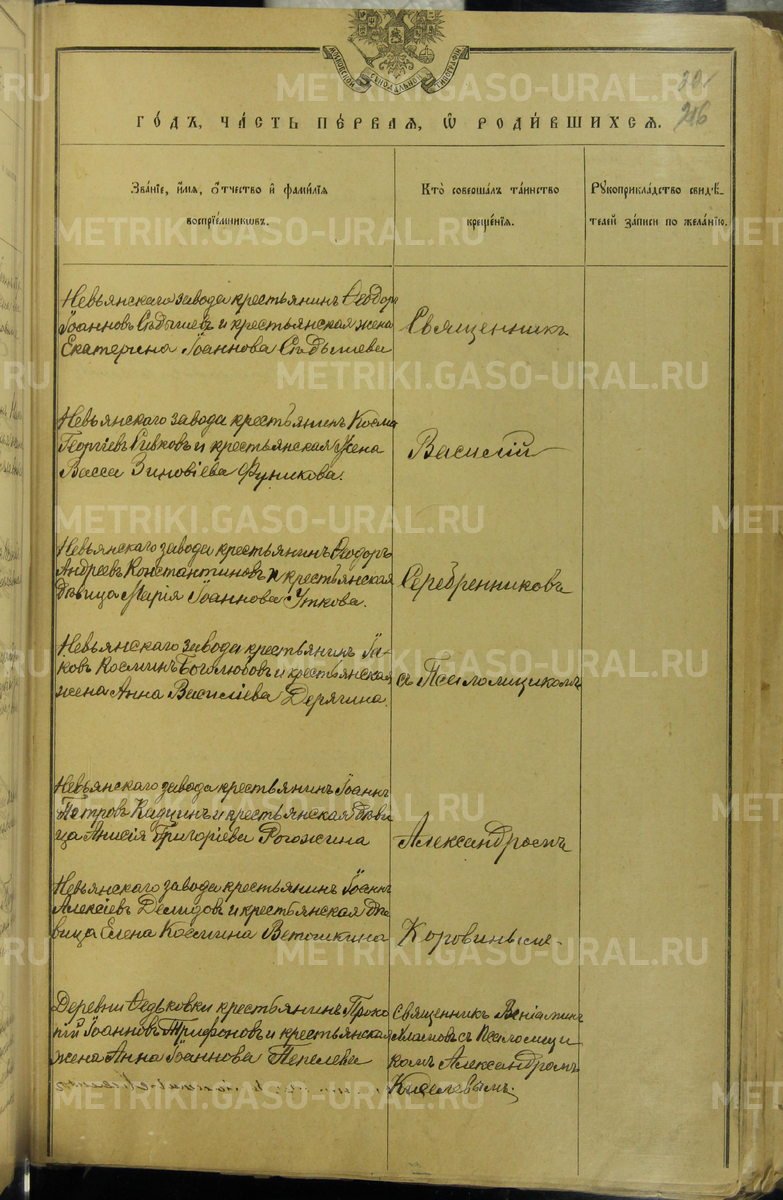 МОСКОВСКОЙ СѴНОДАЛЬНОЙ ТИПОГРАФІИ
301
216
ГО́ДЪ, ЧА́СТЬ ПЕ́РВАЯ, Ѡ РОДИ́ВШИХСЯ.
Зва́нїе, и́мя, о́тчество и҆ фами́лїя
воспрїе́мникωвъ.
Кто̀ соверша́лъ та́инство
креще́нїя.
Рꙋкоприкла́дство свидѣ́-
телей за́писи по жела́нїю.
Невьянскаго завода крестьянинъ Ѳеодоръ
Іоанновъ Сѣдышевъ и крестьянская жена
Екатерина Іоаннова Сѣдышева
Священникъ
Невьянскаго завода крестьянинъ Косма
Георгіевъ и крестьянская жена
Васса Зиновіева Фуникова.
Василій
Невьянскаго завода крестьянинъ Ѳеодоръ
Андреевъ Константиновъ и крестьянская
дѣвица Марія Іоаннова Уткова.
Серебренниковъ
Невьянскаго завода крестьянинъ Іа-
ковъ Косминъ Боголюбовъ и крестьянская
жена Анна Василіева Дерягина.
съ Псаломщикомъ
Невьянскаго завода крестьянинъ Іоаннъ
Петровъ Кадцинъ и крестьянская дѣви
ца Анисія Григоріева Рогожина
Александромъ
Невьянскаго завода крестьянинъ Іоаннъ
Алексіевъ Демидовъ и крестьянская дѣ
вица Елена Космина Ветошкина
Коровинымъ.
Деревни Ѳедьковки крестьянинъ Проко
пій Іоанновъ Трифоновъ и крестьянская
жена Анна Іоаннова Пепелева
Священникъ Веніаминъ
съ Псаломщи
комъ Александромъ
Киселевымъ.
METRIKI.GASO-URAL.RU